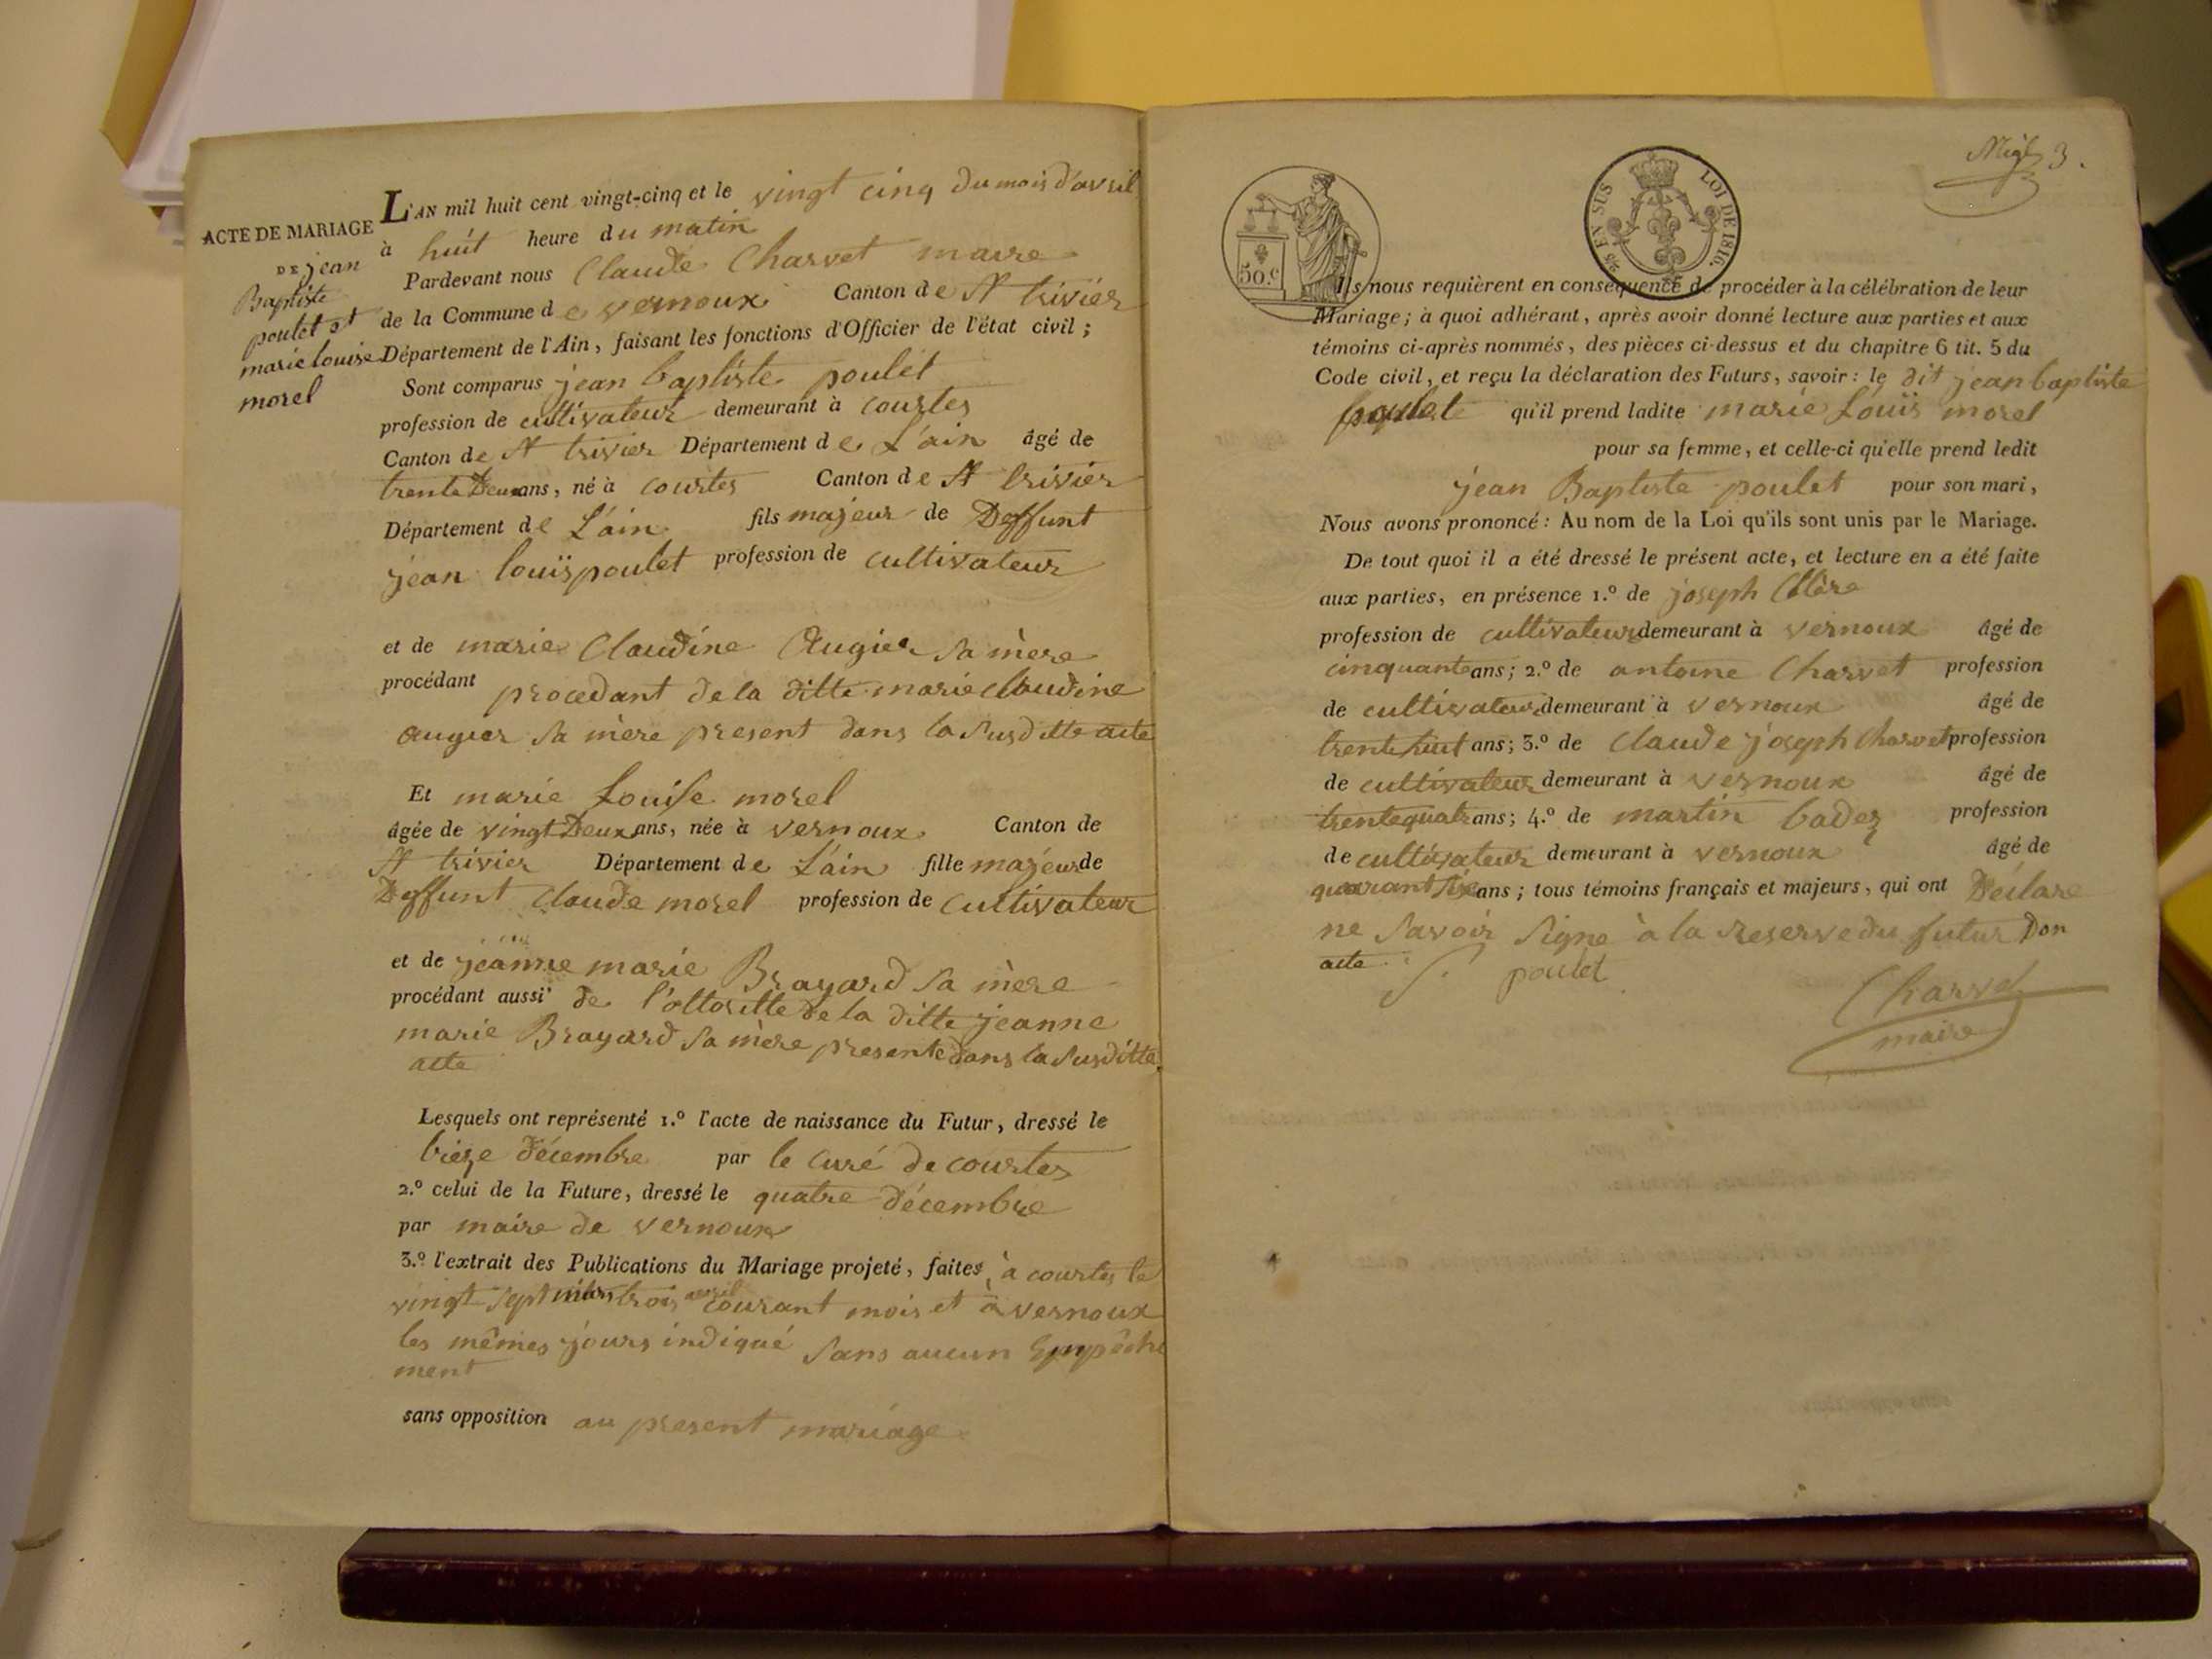 ACTE DE MARIAGE
DE jean
Baptiste
poulet et
marie louise
morel
L'AN mil huit cent vingt-cinq et le vingt cinq du mois d'avril
à huit heure du matin
Pardevant nous Claude Charvet maire
de la Commune de vernoux Canton de St trivier
Département de l'Ain, faisant les fonctions d'Officier de l'état civil;
Sont comparus jean baptiste poulet
profession de cultivateur demeurant à courtes
Canton de St trivier Département de L'ain âgé de
trente Deux ans, né à courtes Canton de St trivier
Département de L'ain fils majeur de Deffunt
jean louis poulet profession de cultivateur
et de marie Claudine Augier sa mère
procédant procedant de la ditte marie claudine
augier sa mère present dans la susditte acte
Et marie Louise morel
âgée de vingt Deux ans, née à vernoux Canton de
St trivier Département de L'ain fille majeur de
Deffunt Claude morel profession de cultivateur
et de jeanne marie Brayard sa mère
procédant aussi de l'ottoritte de la ditte jeanne
marie Brayard sa mère presente dans la susditte
acte
Lesquels ont représenté 1.º l'acte de naissance du Futur, dressé le
trieze décembre par le curé de courtes
2.º celui de la Future, dressé le quatre décembre
par maire de vernoux
3.º l'extrait des Publications du Mariage projeté, faites, à courtes le
vingt sept mars trois avril courant mois et à vernoux
les mêmes jours indiqué sans aucun Empêche
ment
sans opposition au present mariage
3.
50.c
EN SUS LOI DE 1816.
Ils nous requièrent en conséquence de procéder à la célébration de leur
Mariage; à quoi adhérant, après avoir donné lecture aux parties et aux
témoins ci-après nommés, des pièces ci-dessus et du chapitre 6 tit. 5 du
Code civil, et reçu la déclaration des Futurs, savoir: le dit jean baptiste
poulet qu'il prend ladite marie Louis morel
pour sa femme, et celle-ci qu'elle prend ledit
jean Baptiste poulet pour son mari,
Nous avons prononcé: Au nom de la Loi qu'ils sont unis par le Mariage.
De tout quoi il a été dressé le présent acte, et lecture en a été faite
aux parties, en présence 1.º de joseph
profession de cultivateur demeurant à vernoux âgé de
cinquante ans; 2.º de antoine Charvet profession
de cultivateur demeurant à vernoux âgé de
trente huit ans; 3.º de Claude joseph Charvet profession
de cultivateur demeurant à vernoux âgé de
trente quatre ans; 4.º de martin badez profession
de cultivateur demeurant à vernoux âgé de
quarant six ans; tous témoins français et majeurs, qui ont Déclare
ne savoir signe à la reserve du futur Don
acte
poulet
Charvet
maire